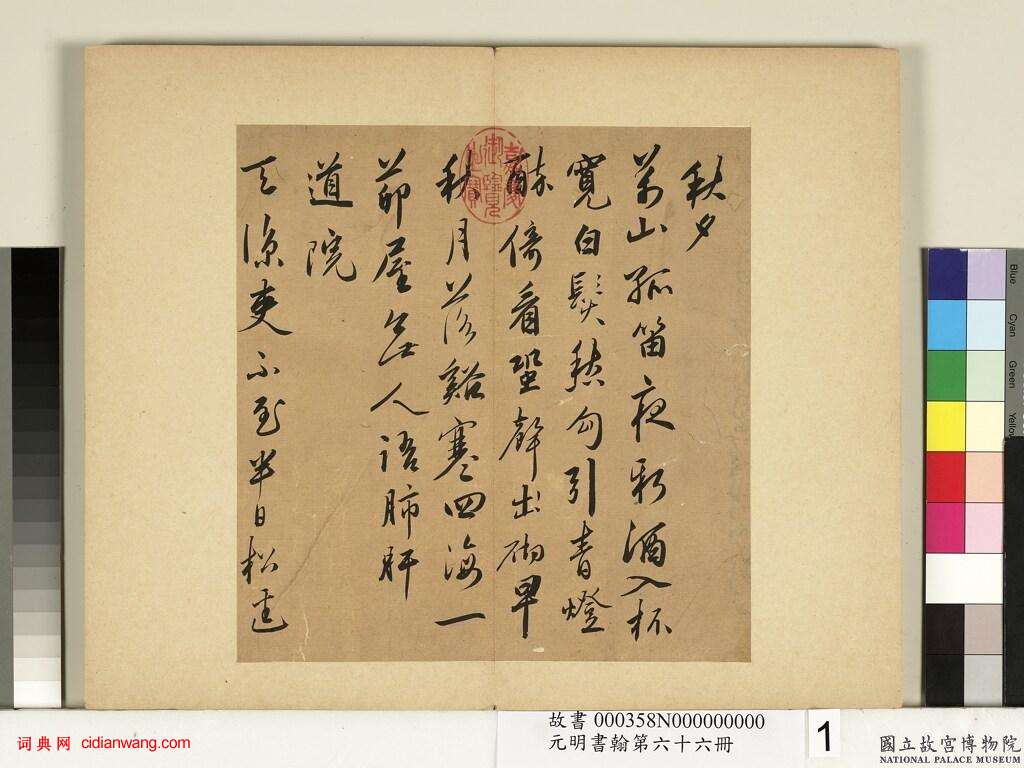 秋夕
萬山孤笛夜新酒入杯
寬白髮愁勾引青燈
醉倚看蛩聲出砌早
秋月落谿寒四海一
茆屋無人語肺肝
道院
天涼吏不至半日松
嘉慶御覽之寶
Blue
Cyan
Green
Yellow
故書 000358N000000000
元明書翰第六十六冊
1
國立故宮博物院
NATIONAL PALACE MUSEUM
词典网 cidianwang.com